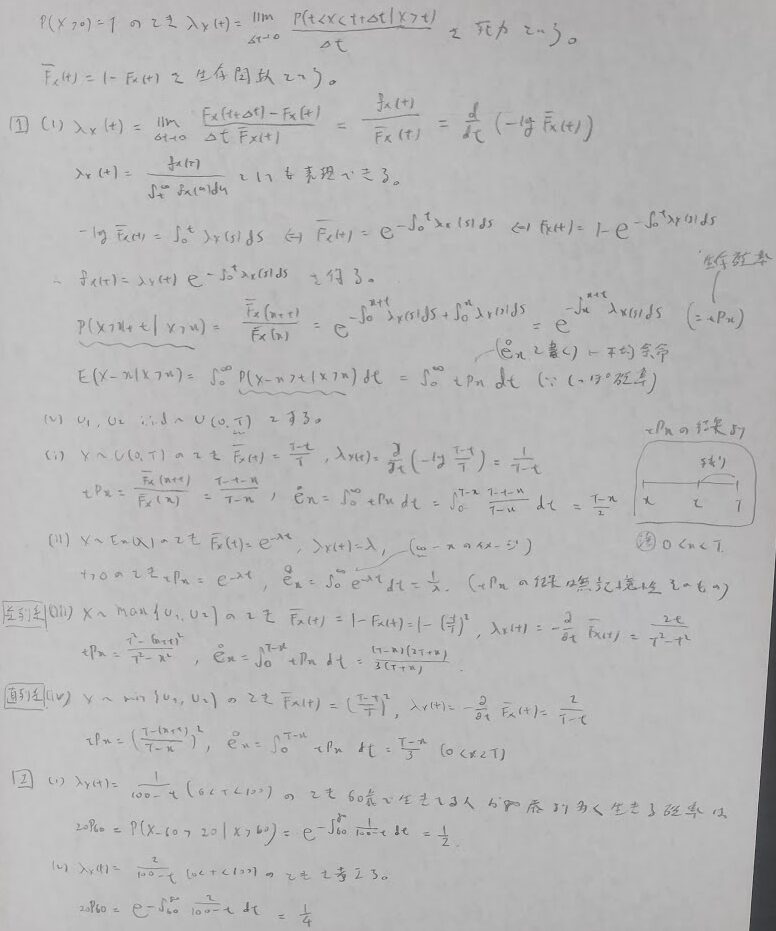 P(X>0)=1 のとき λx(t)= lim Δt→0 P(t<X<t+Δt|X>t)/Δt を死力という。
F̅x(t)=1-Fx(t) を生存関数という。
[1] (1) λx(t)= lim Δt→0 (Fx(t+Δt)-Fx(t))/(Δt F̅x(t)) = fx(t)/F̅x(t) = d/dt (-log F̅x(t))
λx(t)= fx(t)/∫t^∞ fx(u)du としても表現できる。
-log F̅x(t) = ∫0^t λx(s)ds ⇔ F̅x(t)= e^{-∫0^t λx(s)ds} ⇔ Fx(t)= 1-e^{-∫0^t λx(s)ds}
∴ fx(t)=λx(t) e^{-∫0^t λx(s)ds} を得る。
生存確率
P(X>x+t|X>x) = F̅x(x+t)/F̅x(x) = e^{-∫0^{x+t} λx(s)ds+∫0^x λx(s)ds} = e^{-∫x^{x+t} λx(s)ds} (=tPx)
(e̊x と書く) ← 平均余命
E(X-x|X>x)= ∫0^∞ P(X-x>t|X>x)dt = ∫0^∞ tPx dt
(2) U1, U2 iid ~ U(0,T) とする。
tPxの結果より
(i) X~U(0,T) のとき F̅x(t)= (T-t)/T, λx(t)= ∂/∂t (-log (T-t)/T) = 1/(T-t)
tPx = F̅x(x+t)/F̅x(x) = (T-t-x)/(T-x), e̊x = ∫0^∞ tPx dt = ∫0^{T-x} (T-t-x)/(T-x) dt = (T-x)/2
x t T
0<x<T
(ii) X~Ex(λ) のとき F̅x(t)=e^{-λt}, λx(t)=λ, (∞-xのイメージ)
t>0 のとき tPx = e^{-λt}, e̊x = ∫0^∞ e^{-λt}dt = 1/λ. (tPxの結果は無記憶性そのもの)
並列系 (iii) X~max{U1,U2} のとき F̅x(t) = 1-Fx(t)=1-(t/T)^2, λx(t)= -∂/∂t F̅x(t) = 2t/(T^2-t^2)
tPx = (T^2-(x+t)^2)/(T^2-x^2), e̊x = ∫0^{T-x} tPx dt = (T-x)(2T+x)/3(T+x)
直列系 (iv) X~min{U1,U2} のとき F̅x(t)=((T-t)/T)^2, λx(t)= -∂/∂t F̅x(t)= 2/(T-t)
tPx = ((T-(x+t))/(T-x))^2, e̊x = ∫0^{T-x} tPx dt = (T-x)/3 (0<x<T)
[2] (1) λx(t)= 1/(100-t) (0<t<100) のとき 60歳で生きてる人が 多く生きる確率は
20P60 = P(X-60>20|X>60) = e^{-∫60^80 1/(100-t) dt} = 1/2.
(2) λx(t)= 2/(100-t) (0<t<100) のときを考える。
20P60 = e^{-∫60^80 2/(100-t) dt} = 1/4